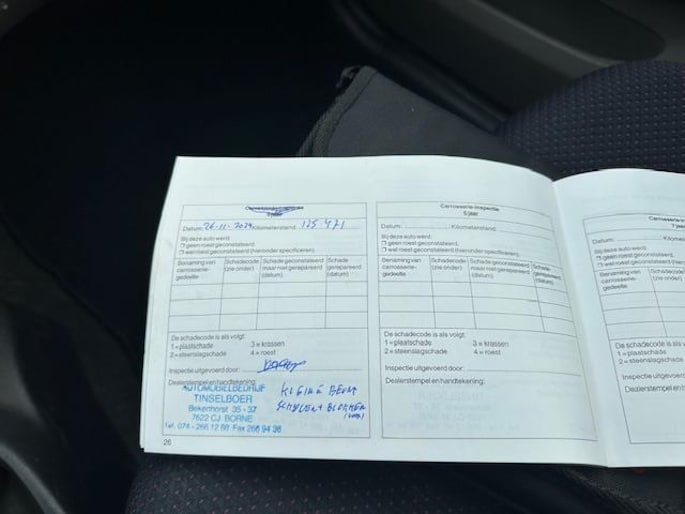 Datum: 26-11-2024 Kilometerstand: 125 471
Bij deze auto werd:
geen roest geconstateerd.
wel roest geconstateerd (hieronder specificeren).
Benaming van carrosserie-gedeelte
Schadecode (zie onder)
Schade geconstateerd maar niet gerepareerd (datum)
Schade gerepareerd (datum)
De schadecode is als volgt:
1 = plaatschade 3 = krassen
2 = steenslagschade 4 = roest
Inspectie uitgevoerd door:
Dealerstempel en handtekening:
AUTOMOBIELBEDRIJF
TINSELBOER
Bekenhorst 35 - 37
7622 CJ BORNE
Tel. 074 - 266 12 88 Fax 266 94 36
KLEINE BEURT
SCHIJVEN + BLOKKEN
26
Carrosserie-inspectie
5 jaar
Datum: Kilometerstand:
Bij deze auto werd:
geen roest geconstateerd.
wel roest geconstateerd (hieronder specificeren).
Benaming van carrosserie-gedeelte
Schadecode (zie onder)
Schade geconstateerd maar niet gerepareerd (datum)
Schade gerepareerd (datum)
De schadecode is als volgt:
1 = plaatschade 3 = krassen
2 = steenslagschade 4 = roest
Inspectie uitgevoerd door:
Dealerstempel en handtekening:
Datum:
Bij deze auto werd:
geen roest geconstateerd.
wel roest geconstateerd
Benaming van carrosserie-gedeelte
Schadecode (zie onder)
De schadecode is als
1 = plaatschade
2 = steenslagschade
Inspectie uitgevoerd
Dealerstempel en